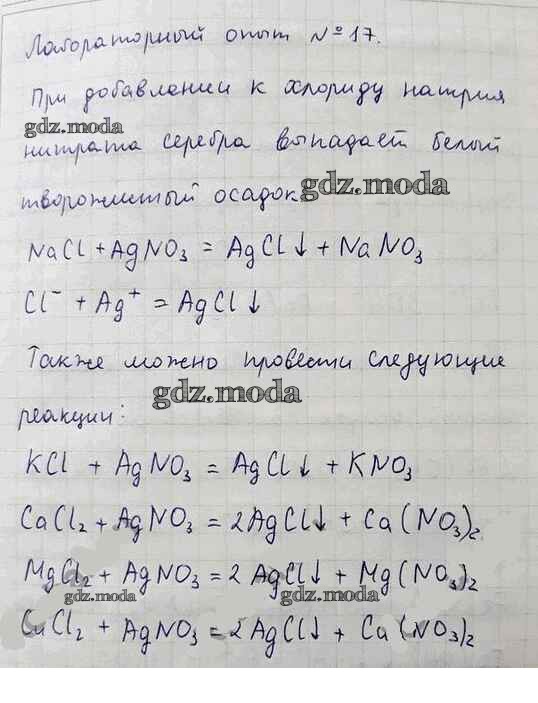 Лабораторный опыт №17.
При добавлении к хлориду натрия
gdz.moda
нитрата серебра выпадает белый
творожистый осадок
gdz.moda
NaCl + AgNO₃ = AgCl↓ + NaNO₃
Cl⁻ + Ag⁺ = AgCl↓
Также можно провести следующие
gdz.moda
реакции:
KCl + AgNO₃ = AgCl↓ + KNO₃
CaCl₂ + AgNO₃ = 2AgCl↓ + Ca(NO₃)₂
MgCl₂ + AgNO₃ = 2AgCl↓ + Mg(NO₃)₂
gdz.moda gdz.moda
CuCl₂ + AgNO₃ = 2AgCl↓ + Ca(NO₃)₂